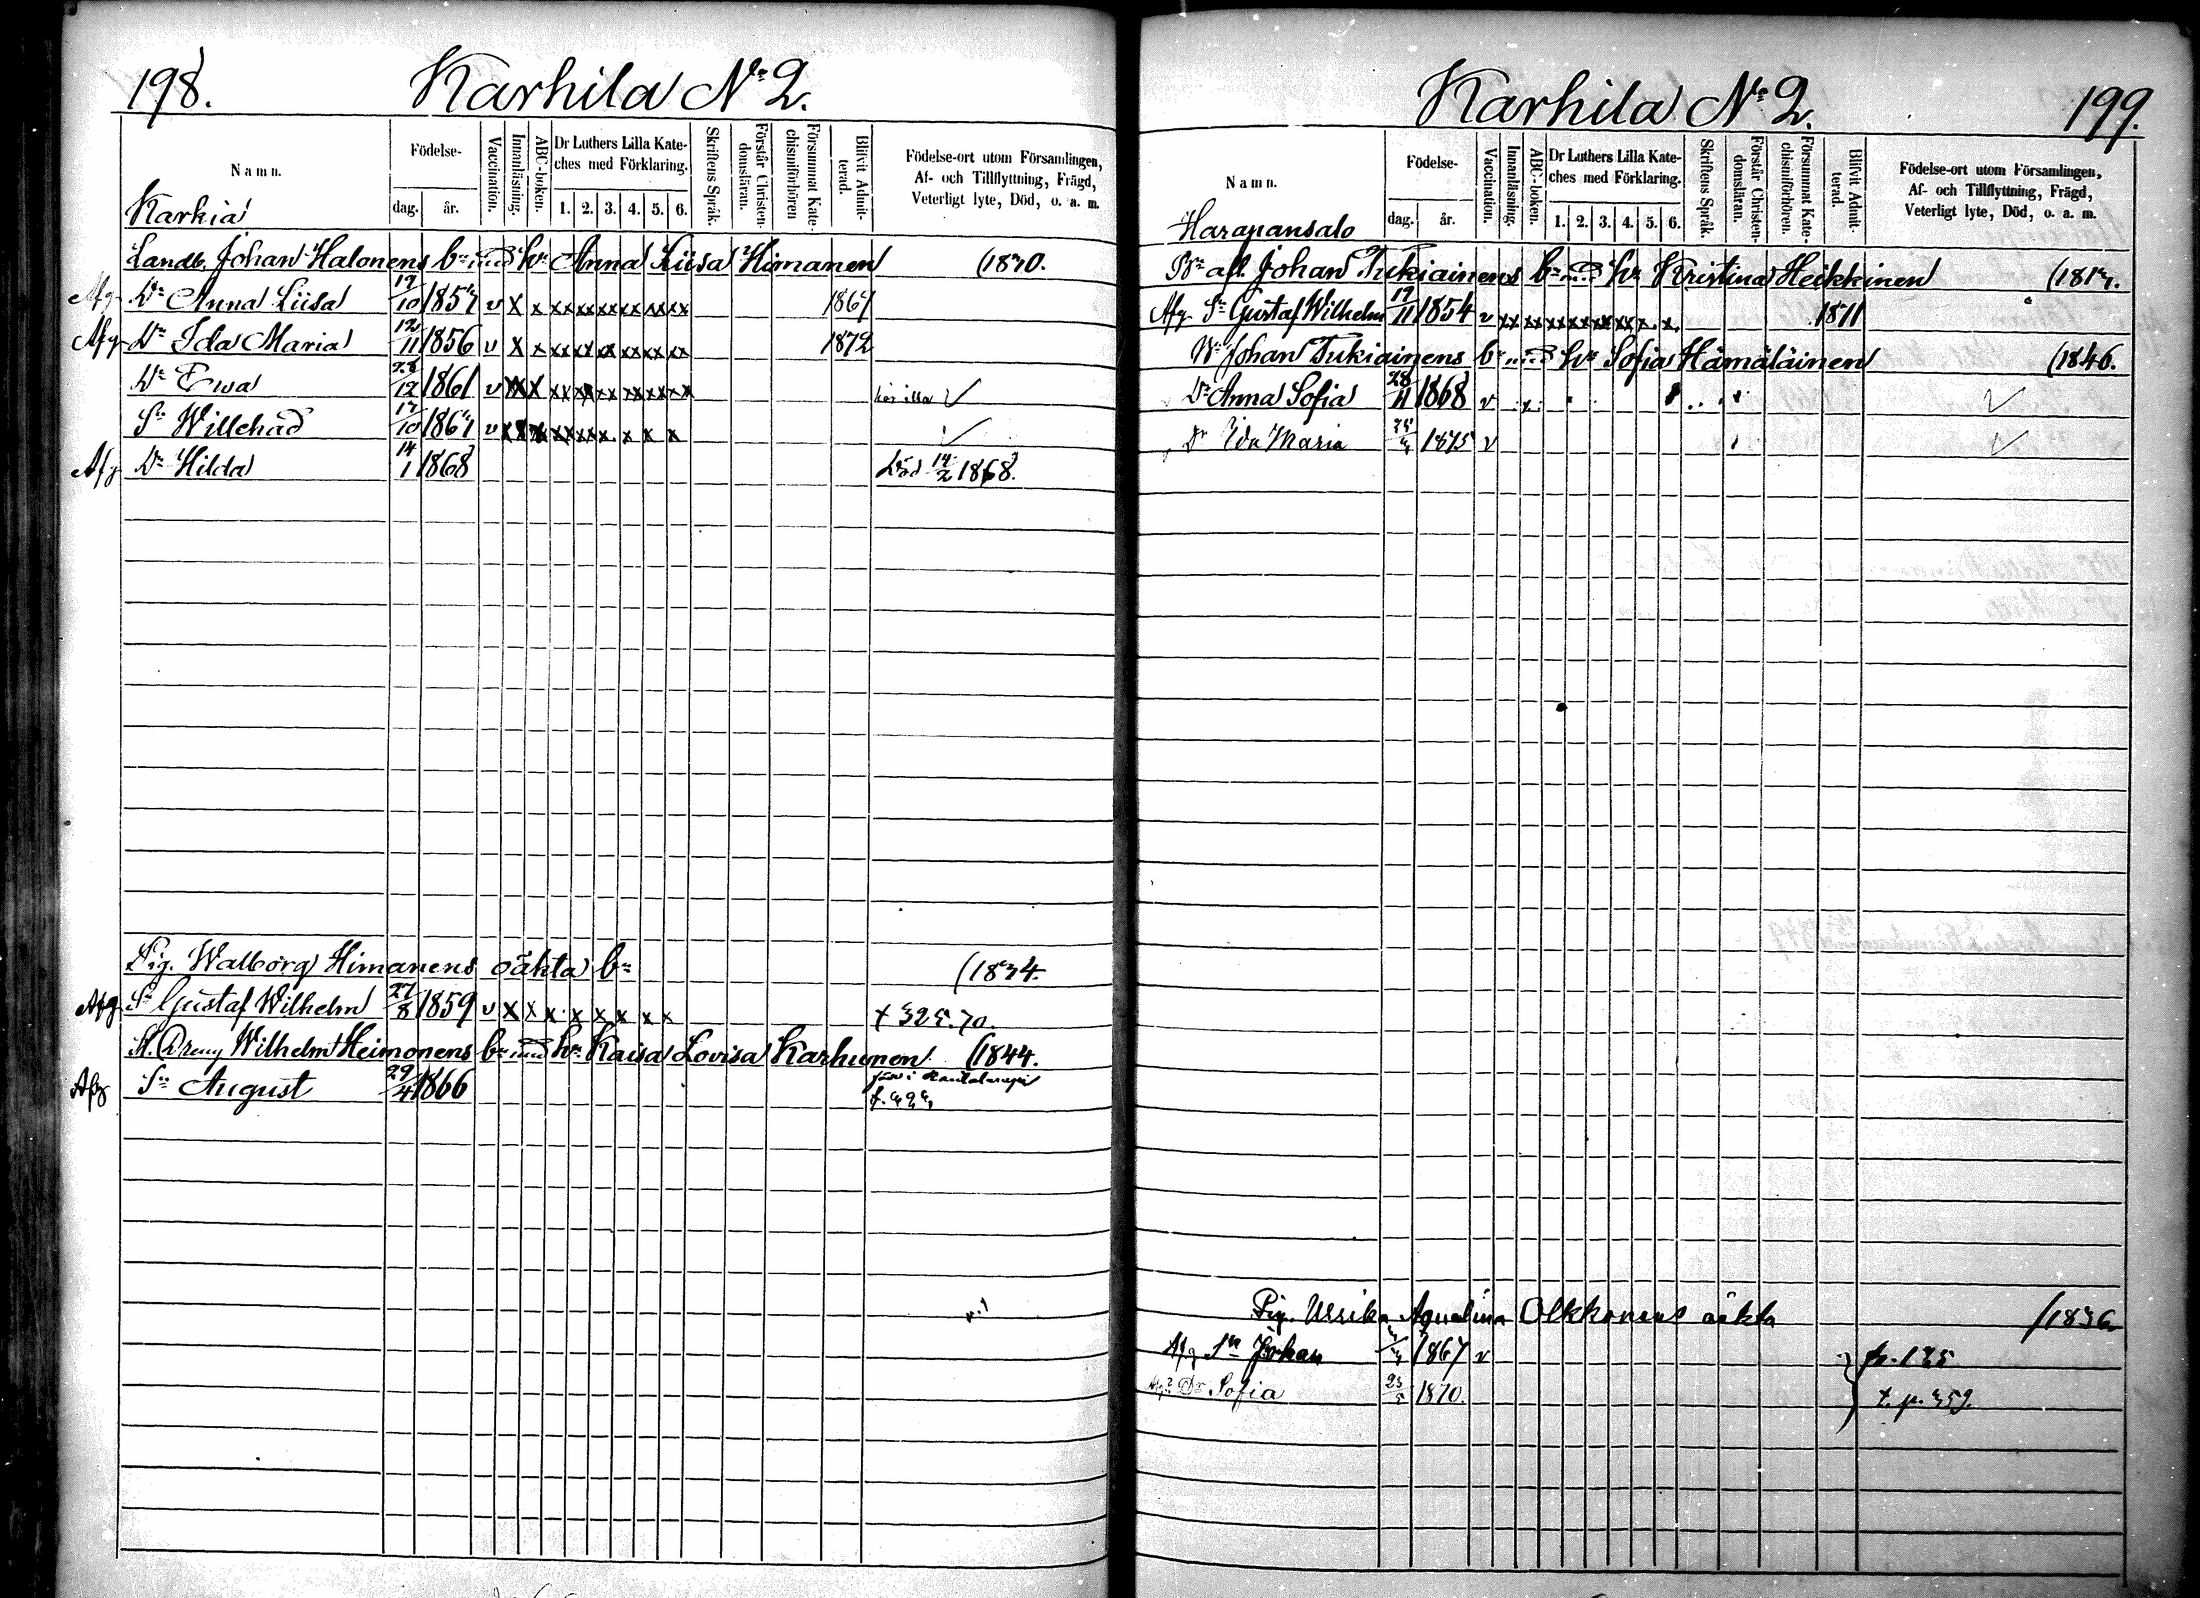 198.
Karhila No 2.
Namn.
Födelse-
dag. år.
Vaccination.
Innanläsning.
ABC-boken.
Dr Luthers Lilla Kate-
ches med Förklaring.
1. 2. 3. 4. 5. 6.
Skriftens Språk.
Förstår Christen-
domsläran.
Försummat Kate-
chismiförhören
Blifvit Admit-
terad.
Födelse-ort utom Församlingen,
Af- och Tillflyttning, Frägd,
Veterligt lyte, Död, o. a. m.
Karkia
Landb. Johan Halonens bn med hu Anna Liisa Himanen (1830.
Afg Dr Anna Liisa 10 1851 v x x xx xx xx xx xx xx 1867
Afg Dr Ida Maria 12/11 1856 v x x xx xx xx xx xx xx 1872
Dr Ewa 28/12 1861 v xx x xx xx xx xx xx xx
Sn Willehad 17/10 1864 v xx xx xx xx x. x x x
Afg Dr Hilda 14/1 1868 Död 14/2 1868.
Pig. Walborg Himanens oäkta bn (1834.
Afg Sn Gustaf Wilhelm 27/8 1859 v x x x x x x x x
Wilhelm Heimonens bn med hu Kaisa Lovisa Karhunen (1844.
Afg Sn August 29/4 1866
Karhila No 2.
199.
Namn.
Födelse-
dag. år.
Vaccination.
Innanläsning.
ABC-boken.
Dr Luthers Lilla Kate-
ches med Förklaring.
1. 2. 3. 4. 5. 6.
Skriftens Språk.
Förstår Christen-
domsläran.
Försummat Kate-
chismiförhören.
Blifvit Admit-
terad.
Födelse-ort utom Församlingen,
Af- och Tillflyttning, Frägd,
Veterligt lyte, Död, o. a. m.
Harapansalo
afl. Johan Tukiainens bn med hu Kristina Heikkinen (1817.
Afg Sn Gustaf Wilhelm 19/11 1854 v xx xx xx xx xx xx x. x. 1871
Johan Tukiainens bn med hu Sofia Hämäläinen (1846.
Dr Anna Sofia 28/11 1868 v
Dr Ida Maria 1875 v
Pig. Ulrika Aqvalina Olkkonens oäkta (1836
Afg Sn Johan 1867 v p. 135
Dr Sofia 23/5 1870. t. p. 359.